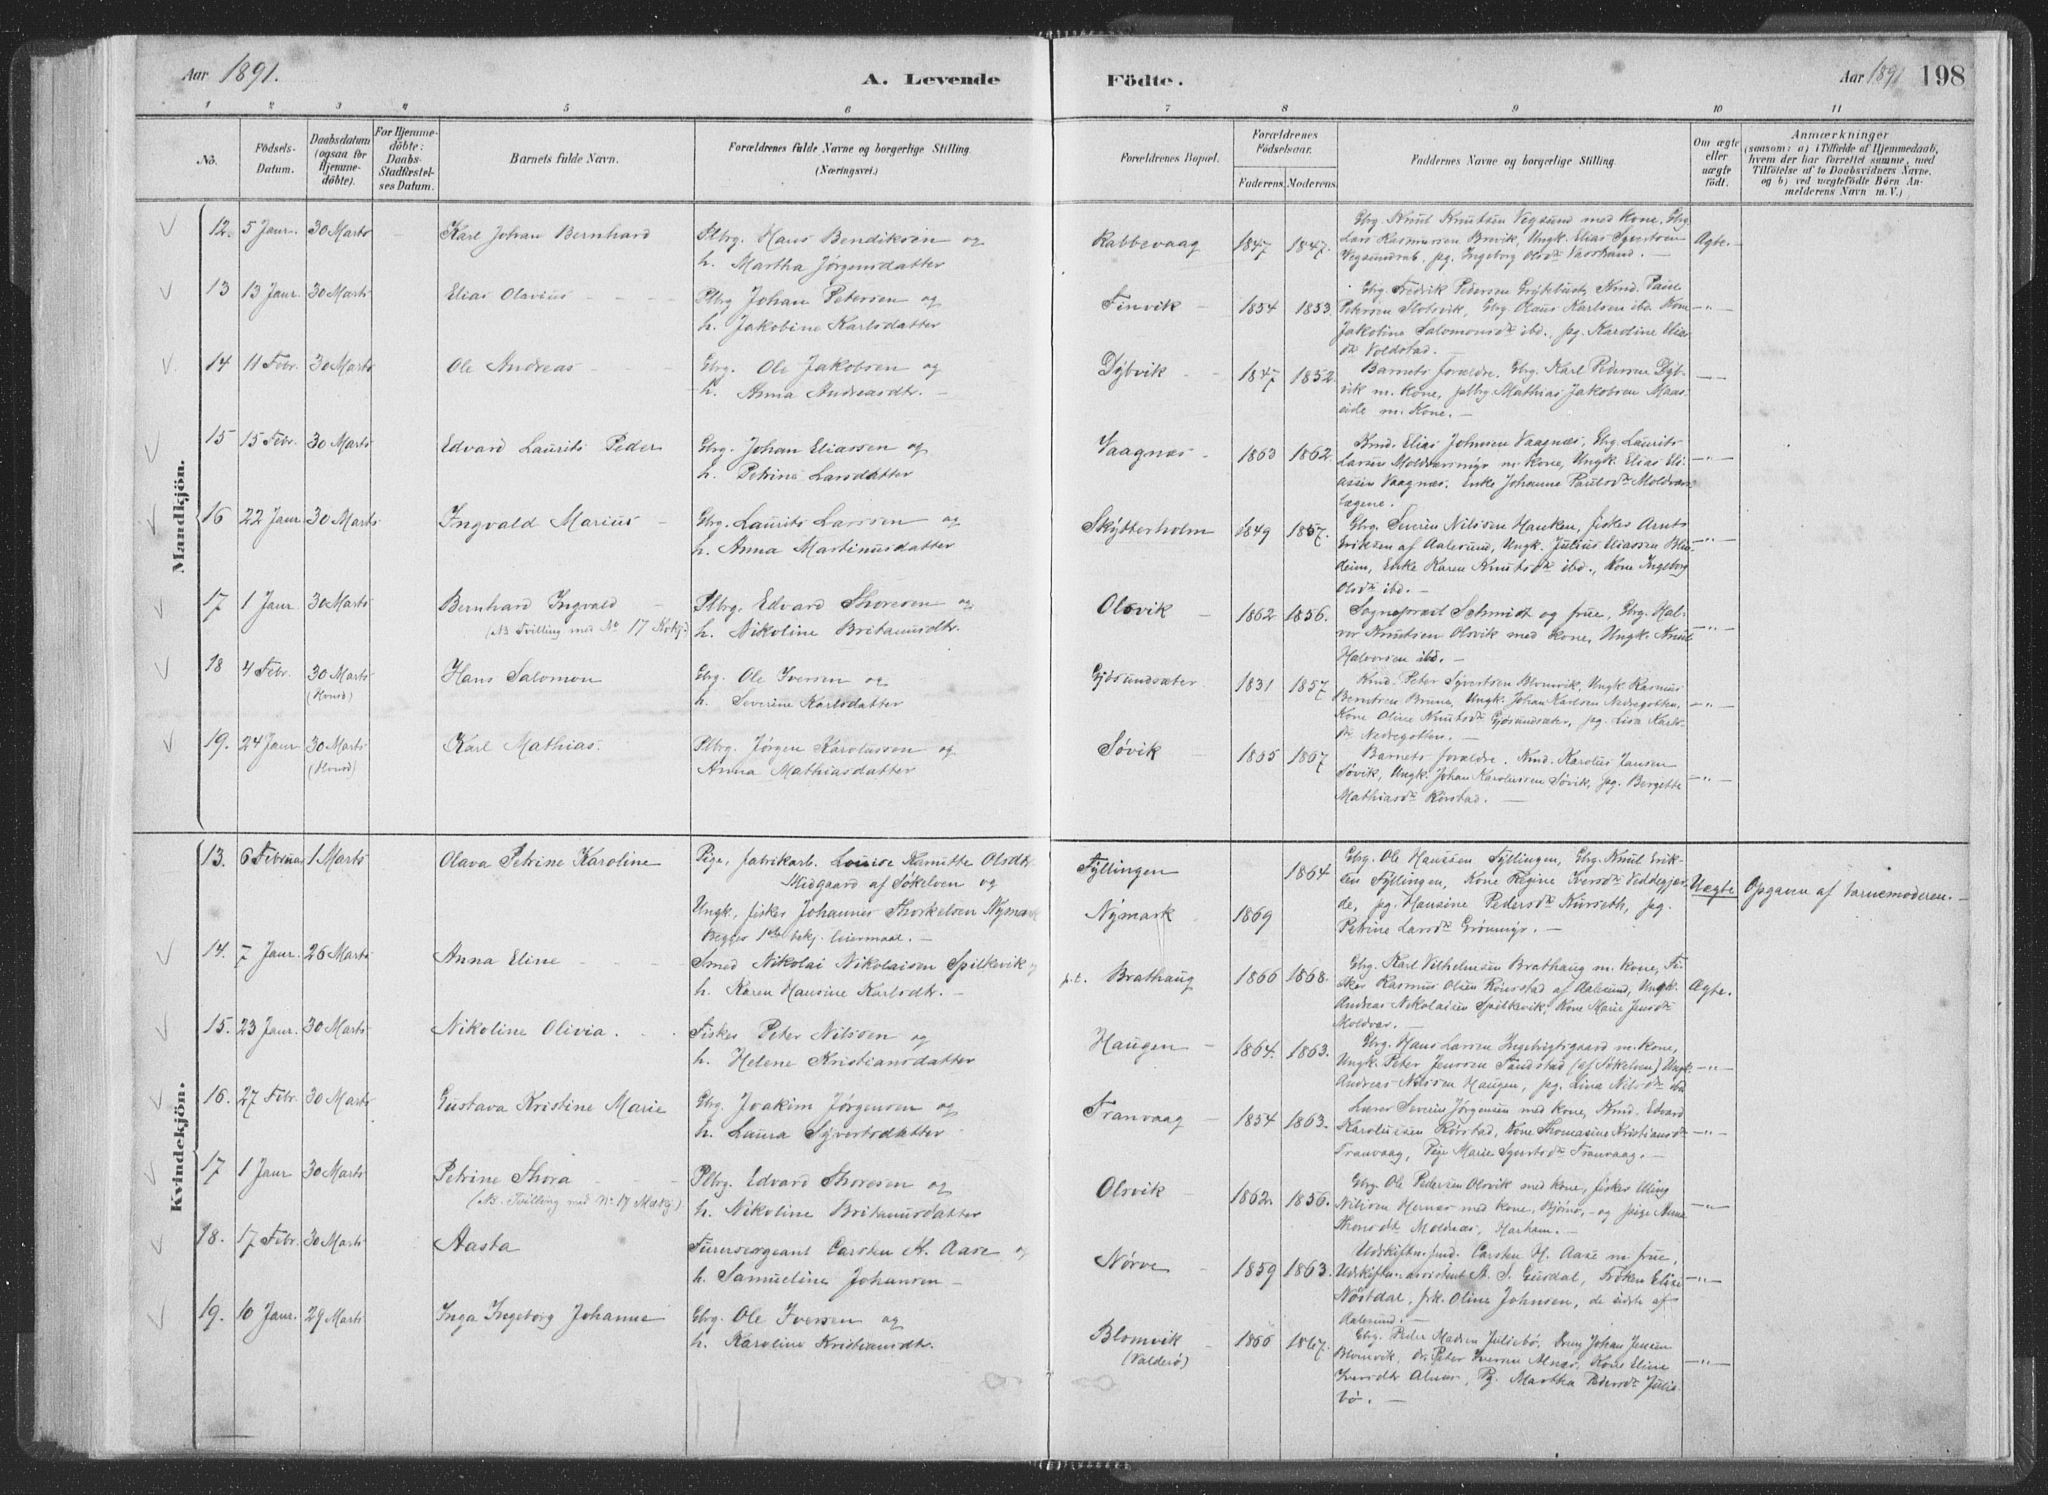 Aar 1891.
A. Levende Födte.
Aar 1891 198
1 2 3 4 5 6 7 8 9 10 11
No.
Födsels-Datum.
Daabsdatum (ogsaa for Hjemmedöbte).
For Hjemmedöbte: Daabs-Stadfæstelses Datum.
Barnets fulde Navn.
Forældrenes fulde Navne og borgerlige Stilling. (Næringsvei.)
Forældrenes Bopæl.
Forældrenes Födselsaar.
Faderens. Moderens.
Faddernes Navne og borgerlige Stilling.
Om ægte eller uægte födt.
Anmærkninger
(saasom: a) i Tilfælde af Hjemmedaab, hvem der har forrettet samme, med Tilföielse af to Daabsvidners Navne, og b) ved uægtefödte Börn Anmelderens Navn m. V.)
Mandkjön.
12. 5 Janr. 30 Marts Karl Johan Bernhard
Plbrg. Hans Bendiksen og
h. Martha Jørgensdatter
Rabbevaag 1847 1847.
Gbrg. Knut Knutsen Vegsund med Kone, Gbrg.
Lars Rasmussen Brevik, Ungk. Elias Syvertsen
Vegsundsab, pg. Ingeborg Olsdr. Vasstrand. —
Ægte.
13 13 Janr. 30 Marts Elias Olavius
Plbrg Johan Petersen og
h. Jakobine Karlsdatter
Finvik 1854 1853.
Gbrg. Fredrik Pedersen Grytebust, Kmd. Paul
Petersen Slotsvik, Gbrg. Claus Karlsen ibd. Kone
Jakobine Salomonsdr. ibd. pg. Karoline Elias
dr. Voldstad. —
14 11 Febr. 30 Marts Ole Andreas
Gbrg. Ole Jakobsen og
h. Anna Andreasdtr. —
Dybvik 1847 1852.
Barnets forældre. Gbrg. Karl Pedersen Dyb-
vik m. Kone, plbrg Mathias Jakobsen Maas-
eide m. Kone. —
15 15 Febr. 30 Marts Edvard Laurits Peder
Gbrg. Johan Eliassen og
h. Petrine Larsdatter
Vaagnæs 1863 1862.
Kmd. Elias Johnsen Vaagnæs, Gbrg. Laurits
Larsen Moldværsmyr m. Kone, Ungk. Elias Eli-
assen Vaagnæs, Enke Johanne Paulsdr. Moldvær
lægene.
16 22 Janr. 30 Marts Ingvald Marius
Gbrg. Laurits Larssen og
h. Anna Martinusdatter
Skytterholm 1849 1857.
Gbrg. Severin Nilssen Hauken, fisker Arnt
Eriksen af Aalesund, Ungk. Julius Eliassen Blin-
deim, Enke Karen Knutsdr. ibd., Kone Ingeborg
Olsdr. ibd. —
17 1 Janr. 30 Marts Bernhard Ingvald
(NB Tvilling med No 17 Kvkj.)
Plbrg. Edvard Thoresen og
h. Nikoline Britanusdtr.
Olsvik 1862 1856.
Sogneprest Schmidt og frue, Gbrg. Hal-
vor Knutsen Olsvik med Kone, Ungk. Knut
Halvorsen ibd. —
18 4 Febr. 30 Marts (Hovsd) Hans Salomon
Gbrg. Ole Iversen og
h. Severine Karlsdatter
Gjøsundsæter 1831 1857
Kmd. Peter Syvertsen Blomvik, Ungk Rasmus
Berntsen Brune, Ungk. Johan Karlsen Nedregotten,
Kone Oline Knutsdr. Gjøsundsæter, pg. Lisa Karls
dr. Nedregotten. —
19. 24 Janr 30 Marts (Hovsd) Karl Mathias.
Plbrg. Jørgen Karolussen og
Anna Mathiasdatter
Søvik 1865 1867
Barnets forældre. Kmd. Karolus Jansen
Søvik, Ungk. Johan Karolussen Søvik, pg. Bergette
Mathiasdr. Rørstad. —
Kvindekjön.
13. 6 Februar 1 Marts Olava Petrine Karoline
Pige, fabrikarb. Louise Kanutte Olsdtr.
Midgaard af Søkelven og
Ungk., fisker Johannes Thorkelsen Nymark
Begges 1ste bekj. leiermaal. —
Fyllingen 1864
Nymark 1869
Gbrg. Ole Hanssen Fyllingen, Gbrg. Knut Erik-
sen Fyllingen, Kone Regine Iversdr. Veddegjer-
de, pg. Hansine Pedersdr. Kurseth, pg.
Petrine Larsdr. Grønmyr. —
Uægte Opgaven af barnemoderen. —
14. 7 Janr. 26 Marts Anna Eline
Smed Nikolai Nikolaisen Spilkevik og
h. Karen Hansine Karlsdtr. —
p.t. Brathaug 1866 1868.
Gbrg. Karl Vilhelmsen Brathaug m. Kone, Fi-
sker Rasmus Olsen Rørstad af Aalesund, Ungk.
Andreas Nikolaisen Spilkevik, Kone Marie Jensdr.
Moldvær. —
Ægte.
15. 23 Janr. 30 Marts Nikoline Olivia.
Fisker Peter Nilssen og
h. Helene Kristiansdatter
Haugen 1864. 1863.
Gbrg. Hans Larsen Ingebrigtsgaard m. Kone,
Ungk. Peter Jenssen Tandstad (af Søkelven) Ungk.
Andreas Nilssen Haugen, pg. Lina Nilsdr. ibd
16. 27 Febr. 30 Marts Gustava Kristine Marie
Gbrg. Joakim Jørgensen og
h. Laura Syvertsdatter
Tranvaag 1854 1863.
Lærer Severin Jørgensen med Kone, Kmd. Edvard
Karolussen Rørstad, Kone Thomasine Kristiansdr
Tranvaag, Pige Marie Syvertsdr. Tranvaag. —
17 1 Janr 30 Marts Petrine Thora
(NB. Tvilling med No 17 Mandkj.)
Plbrg. Edvard Thoresen og
h. Nikoline Britanusdatter
Olsvik 1862. 1856.
Gbrg. Ole Pedersen Olsvik med Kone, fisker Uling
Nilssen Hernæs med Kone, Bjørnø, — og pige Anna
Thorsdtr. Moldnæs, Harham. —
18. 17 Febr. 30 Marts Aasta
Furersergeant Carsten H. Aase og
h. Samueline Johansen —
Nørve 1859 1863.
Udskiftn.fmd. Carsten H. Aase m frue,
Udskiftn.assistent A. S. Gusdal, Frøken Elise
Nøstdal, frk. Oline Johnsen, de sidste af
Aalesund. —
19. 10 Janr. 29 Marts Inga Ingeborg Johanne
Gbrg. Ole Iversen og
h. Karoline Kristiansdtr.
Blomvik (Valderø) 1866 1867.
Gbrg. Peder Madsen Juliebø, Svend Johan Jensen
Blomvik, do. Peter Iversen Alnæs, Kone Eline
Iversdtr Alnæs, Pg. Martha Pedersdr. Julie-
bø. —